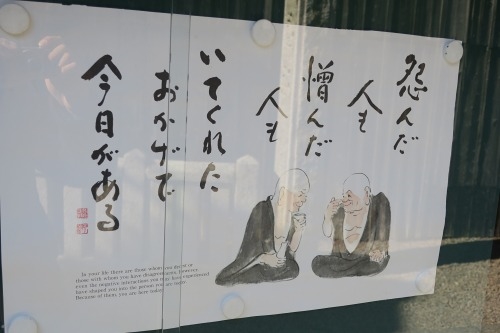 怨んだ
人も
憎んだ
人も
いてくれた
おかげで
今日がある
In your life there are those whom you detest or
those with whom you have disagreements. However
even the negative interactions you may have experienced
have shaped you into the person you are today.
Because of them, you are here today.